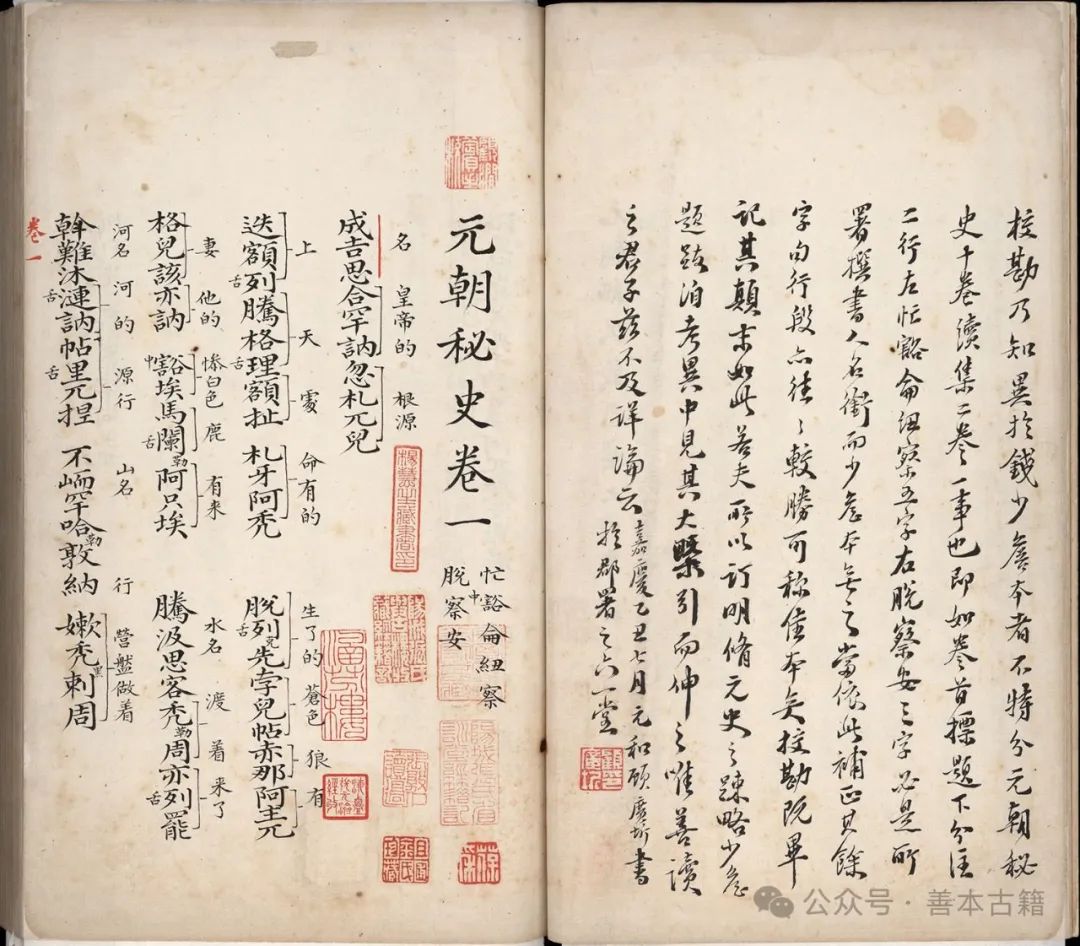 校勘乃知異於錢少詹本者不特分元朝秘
史十卷續集二卷一事也即如卷首標題下分注
二行左忙豁侖紐察五字右脫察安三字必是所
署撰書人名銜而少詹本無之當依此補正其餘
字句行段亦往〻較勝可稱佳本矣校勘既畢
記其顛末如此若夫所以訂明脩元史之疎略少詹
題跋洎考異中見其大槩引而伸之唯善讀
之君子茲不及詳論云
嘉慶乙丑七月元和顧廣圻書
於郡署之六一堂
元朝秘史卷一
忙中豁侖紐察
脫察安
名 皇帝的 根源
成吉思合罕訥忽札兀兒
上 天 處 命有的 生了的 蒼色 狼 有
迭額列舌騰格理舌額扯 札牙阿禿 脫列舌克先孛兒帖赤那阿主兀
妻 他的 慘白色 鹿 有來 水名 渡 着 來了
格兒該亦訥 中豁埃馬闌舌勒阿只埃 騰汲思客禿勒周亦列舌罷
河名 河 的 源行 山名 行 營盤做着
斡難沐漣舌訥帖里舌兀捏 不峏罕哈勒敦納 嫩禿黑剌周
卷一
楊慧生藏書印
顧廣圻
公众号·善本古籍